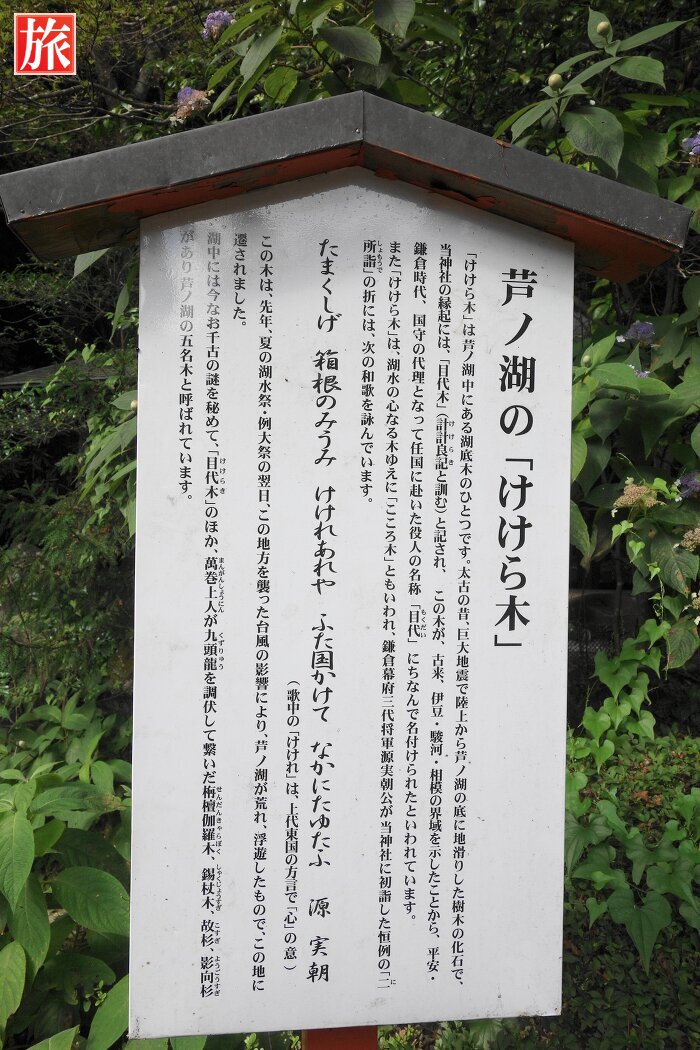 旅
芦ノ湖の「けけら木」
「けけら木」は芦ノ湖中にある湖底木のひとつです。太古の昔、巨大地震で陸上から芦ノ湖の底に地滑りした樹木の化石で、
当神社の縁起には、「目代木」（計計良記と訓む）と記され、この木が、古来、伊豆・駿河・相模の界域を示したことから、平安・
鎌倉時代、国守の代理となって任国に赴いた役人の名称「目代」にちなんで名付けられたといわれています。
また「けけら木」は、湖水の心なる木ゆえに「こころ木」ともいわれ、鎌倉幕府三代将軍源実朝公が当神社に初詣した恒例の「二
所詣」の折には、次の和歌を詠んでいます。
たまくしげ 箱根のみうみ けけれあれや ふた国かけて なかにたゆたふ 源 実朝
（歌中の「けけれ」は、上代東国の方言で「心」の意）
この木は、先年、夏の湖水祭・例大祭の翌日、この地方を襲った台風の影響により、芦ノ湖が荒れ、浮遊したもので、この地に
遷されました。
湖中には今なお千古の謎を秘めて、「目代木」のほか、萬巻上人が九頭龍を調伏して繋いだ栴檀伽羅木、錫杖木、故杉、影向杉
があり芦ノ湖の五名木と呼ばれています。